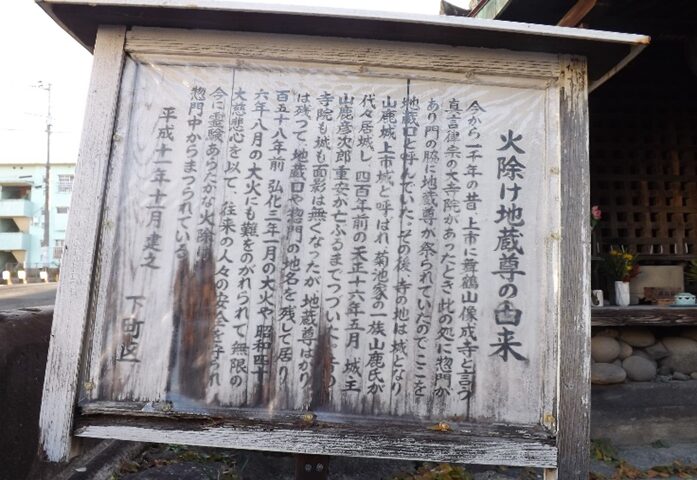 火除け地蔵尊の由来
今から一千年の昔上市に舞鶴山像成寺と言う
真言律宗の大寺院があったとき此の処に惣門が
あり門の脇に地蔵尊が祭られていたのでここを
地蔵口と呼んでいた。その後、寺の地は城となり
山鹿城上市城と呼ばれ、菊池家の一族山鹿氏が
代々居城し四百年前の天正十六年五月 城主
山鹿彦次郎重安が亡ぶるまでつづいた
寺院も城も面影は無くなったが地蔵尊ばかり
は残って、地蔵口や惣門の地名を残して居り
百五十八年前 弘化三年一月の大火や昭和四十
六年八月の大火にも難をのがれられて無限の
大慈悲心を以て往来の人々の安全を守られ
今に霊験あらたかな火除け
惣門中からまつられている。
平成十一年十月建之 下町区